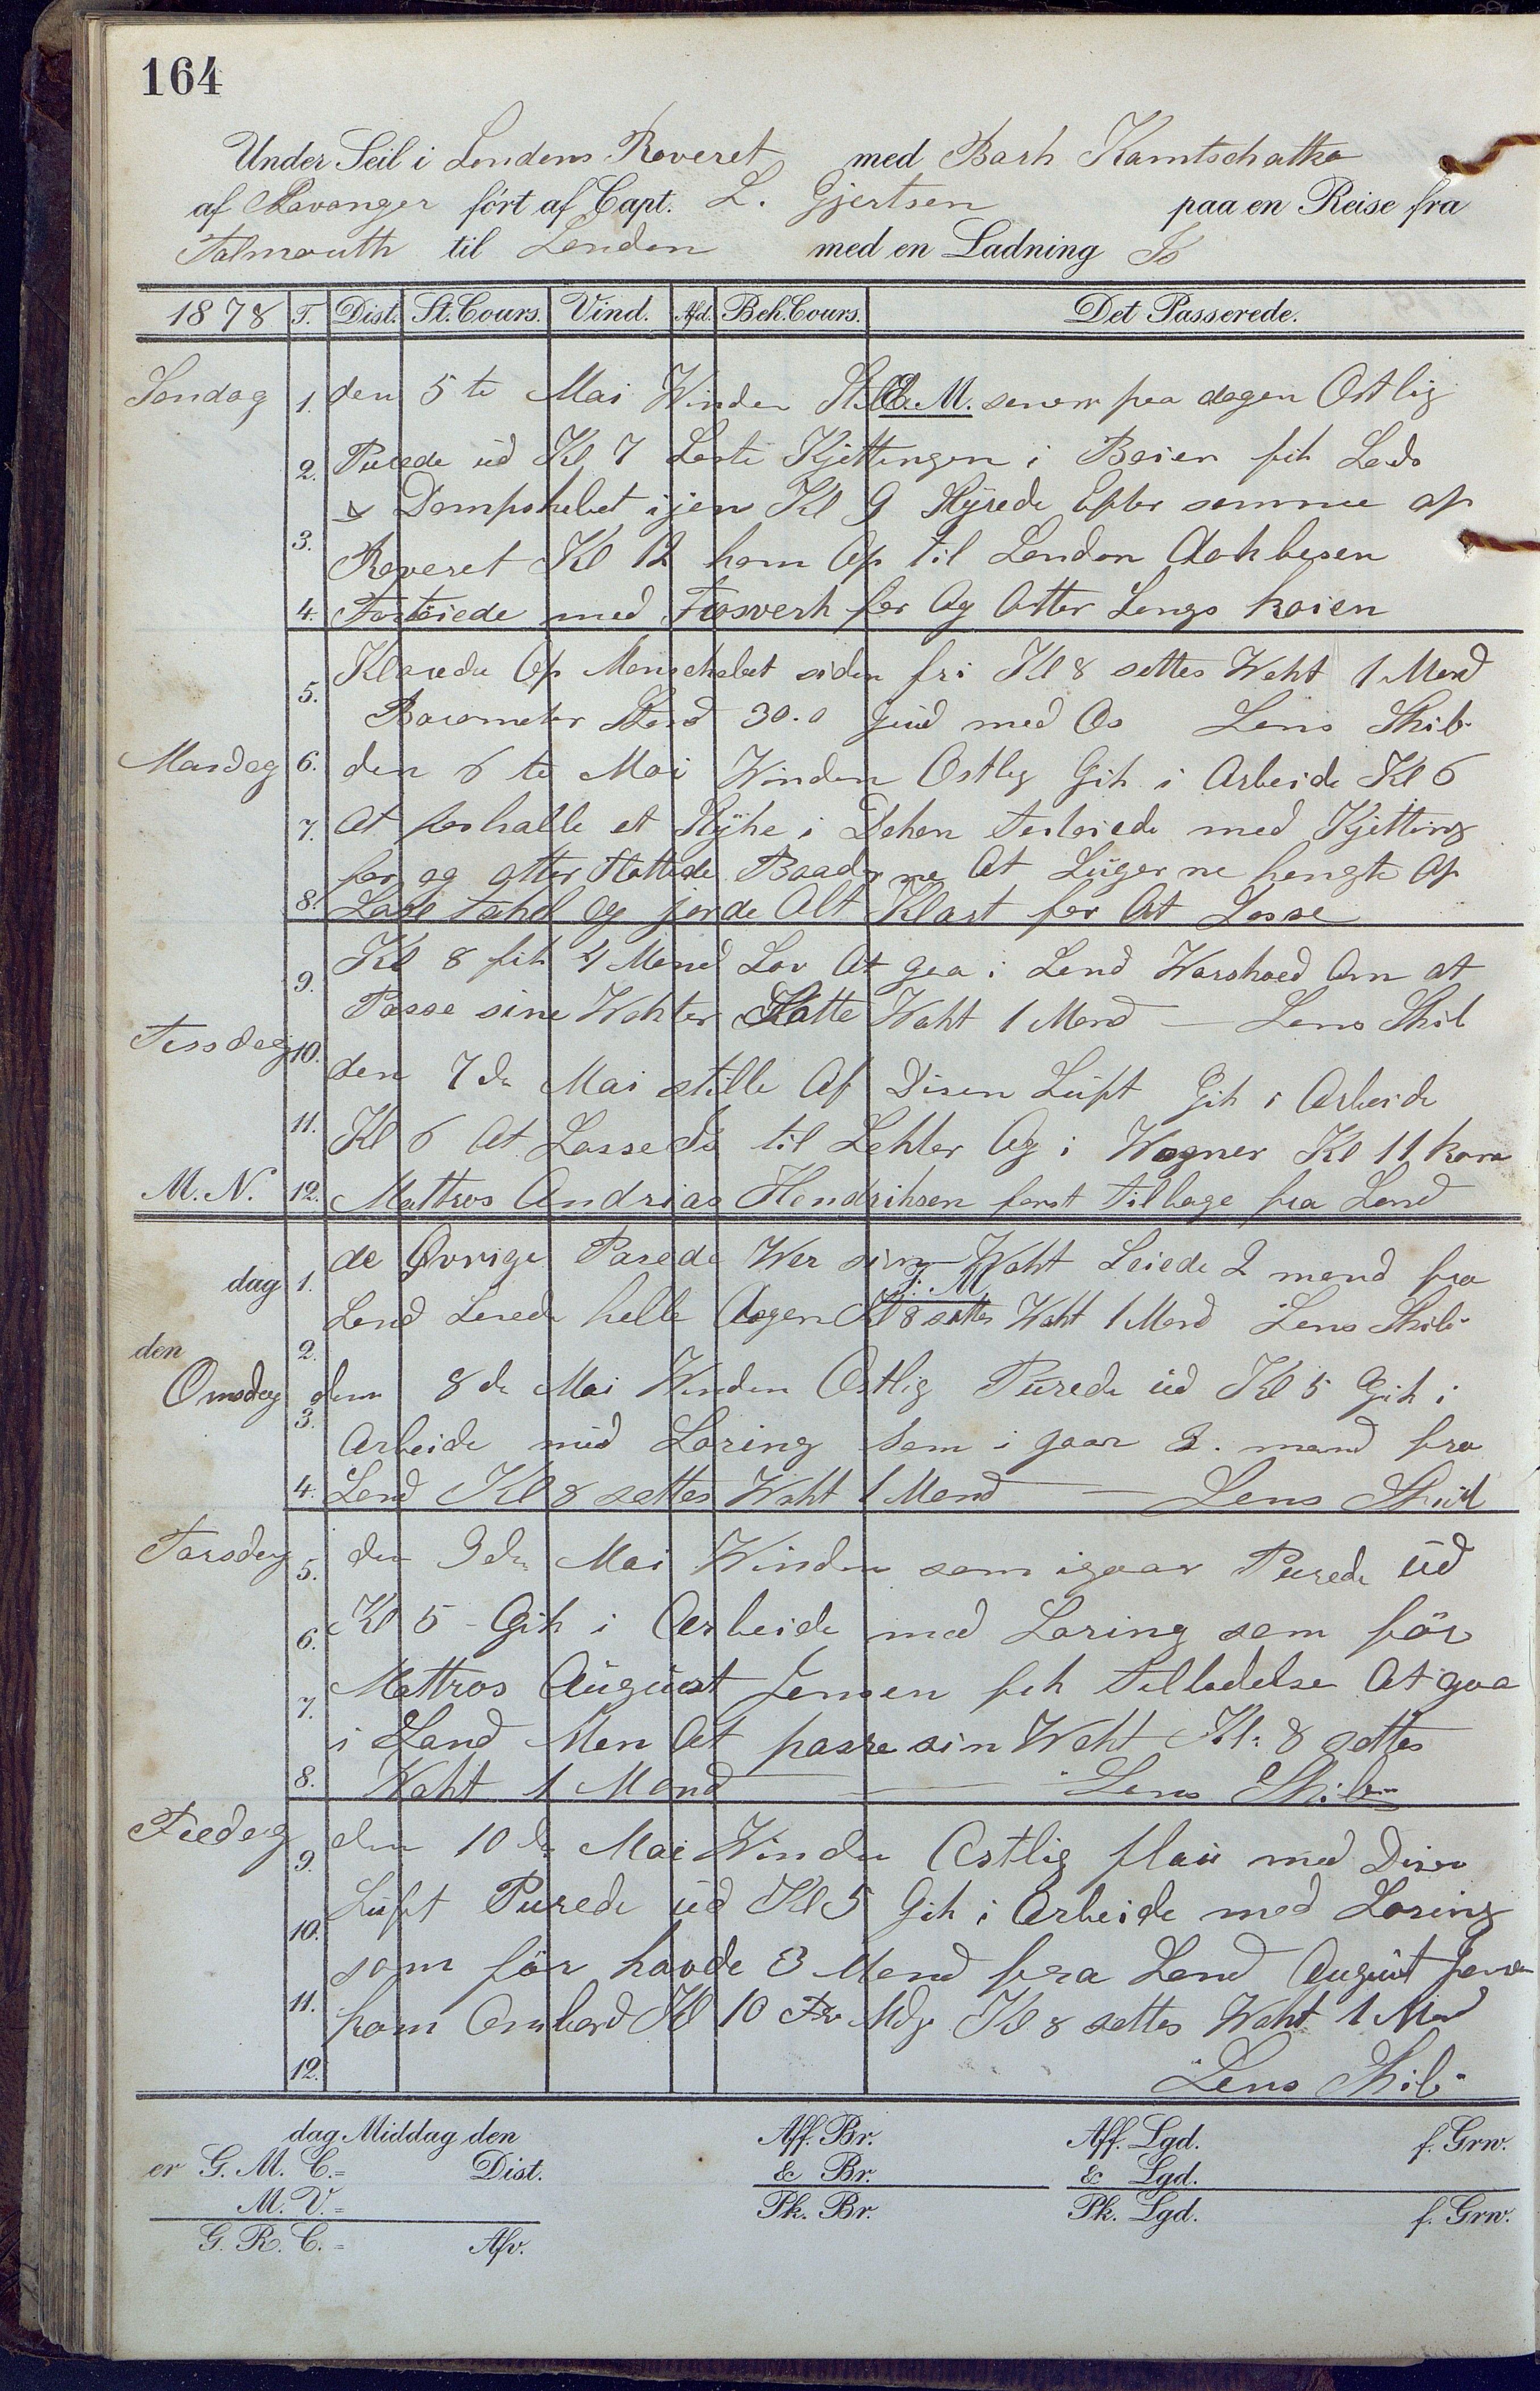 164
Under Seil i Londons Reveret med Bark Kamtschatka
af Stavanger fört af Capt. L. Gjertsen paa en Reise fra
Falmouth til London med en Ladning Is
1878 T. Dist. St. Cours. Vind. Afd. Beh. Cours. Det Passerede.
Søndag 1. den 5te Mai Winden Stille E.M. senere paa dagen Ostlig
2. Purede ud Kl 7 Leste Kjettingen i Beien fik Lods
& Dampskebet igjen Kl 9 Styrede Efter samme op
3. Reveret Kl 12 kom Op til London Dokbesen
4. Fortøiede med Tosverk for Og Atter Lengs kaien
Klarede Op Manskabet siden fri Kl 8 settes Waht 1 Mand
5. Barometer Stand 30.0 Gud med Os Lens Skib
Mandag 6. den 6te Mai Winden Ostlig Gik i Arbeide Kl 6
7. At forhalle et Stykke i Doken Fortøiede med Kjetting
for og atter flottede Baaderne At Lugerne hengte Op
8. Lose takel Og jorde Alt Klart for At Losse
Kl 8 fik 4 Mand Lov At gaa i Land Warskoed Om at
9. Passe sine Wakter Satte Waht 1 Mand — Lens Skib
Tissdag 10. den 7de Mai stille Af Disen Luft Gik i Arbeide
11. Kl 6 At Losse Is til Lekter Og i Wogner Kl 11 kom
M. N. 12. Mattros Andrias Hendriksen først tilbage fra Land
de Øvrige Pasede Wer sin Waht Leiede 2 mand fra
dag 1. E. M.
Land Losede helle dagen Kl 8 settes Waht 1 Mand Lens Skib
den 2.
Onsdag den 8de Mai Winden Ostlig Purede ud Kl 5 Gik i
3. Arbeide med Losing som i gaar 2. mand fra
4. Land Kl 8 settes Waht 1 Mand — Lens Skib
Torsdag 5. den 9de Mai Winden som igaar Purede ud
6. Kl 5 - Gik i Arbeide med Losing som før
Mattros August Jensen fik Tilladelse At gaa
7. i Land Men At passe sin Waht Kl: 8 settes
8. Waht 1 Mand — Lens Skib
Fredag 9. den 10de Mai Winden Ostlig flau med Disen
10. Luft Purede ud Kl 5 Gik i Arbeide med Losing
som før havde 3 Mand fra Land August Jensen
11. kom Ombord Kl 10 For Mdg Kl 8 settes Waht 1 Man
12. Lens Skib
dag Middag den Aff. Br. Aff. Lgd. f. Grw.
er G. M. C.= Dist. & Br. & Lgd.
M. V.= Pk. Br. Pk. Lgd. f. Grw.
G. R. C.= Afv.